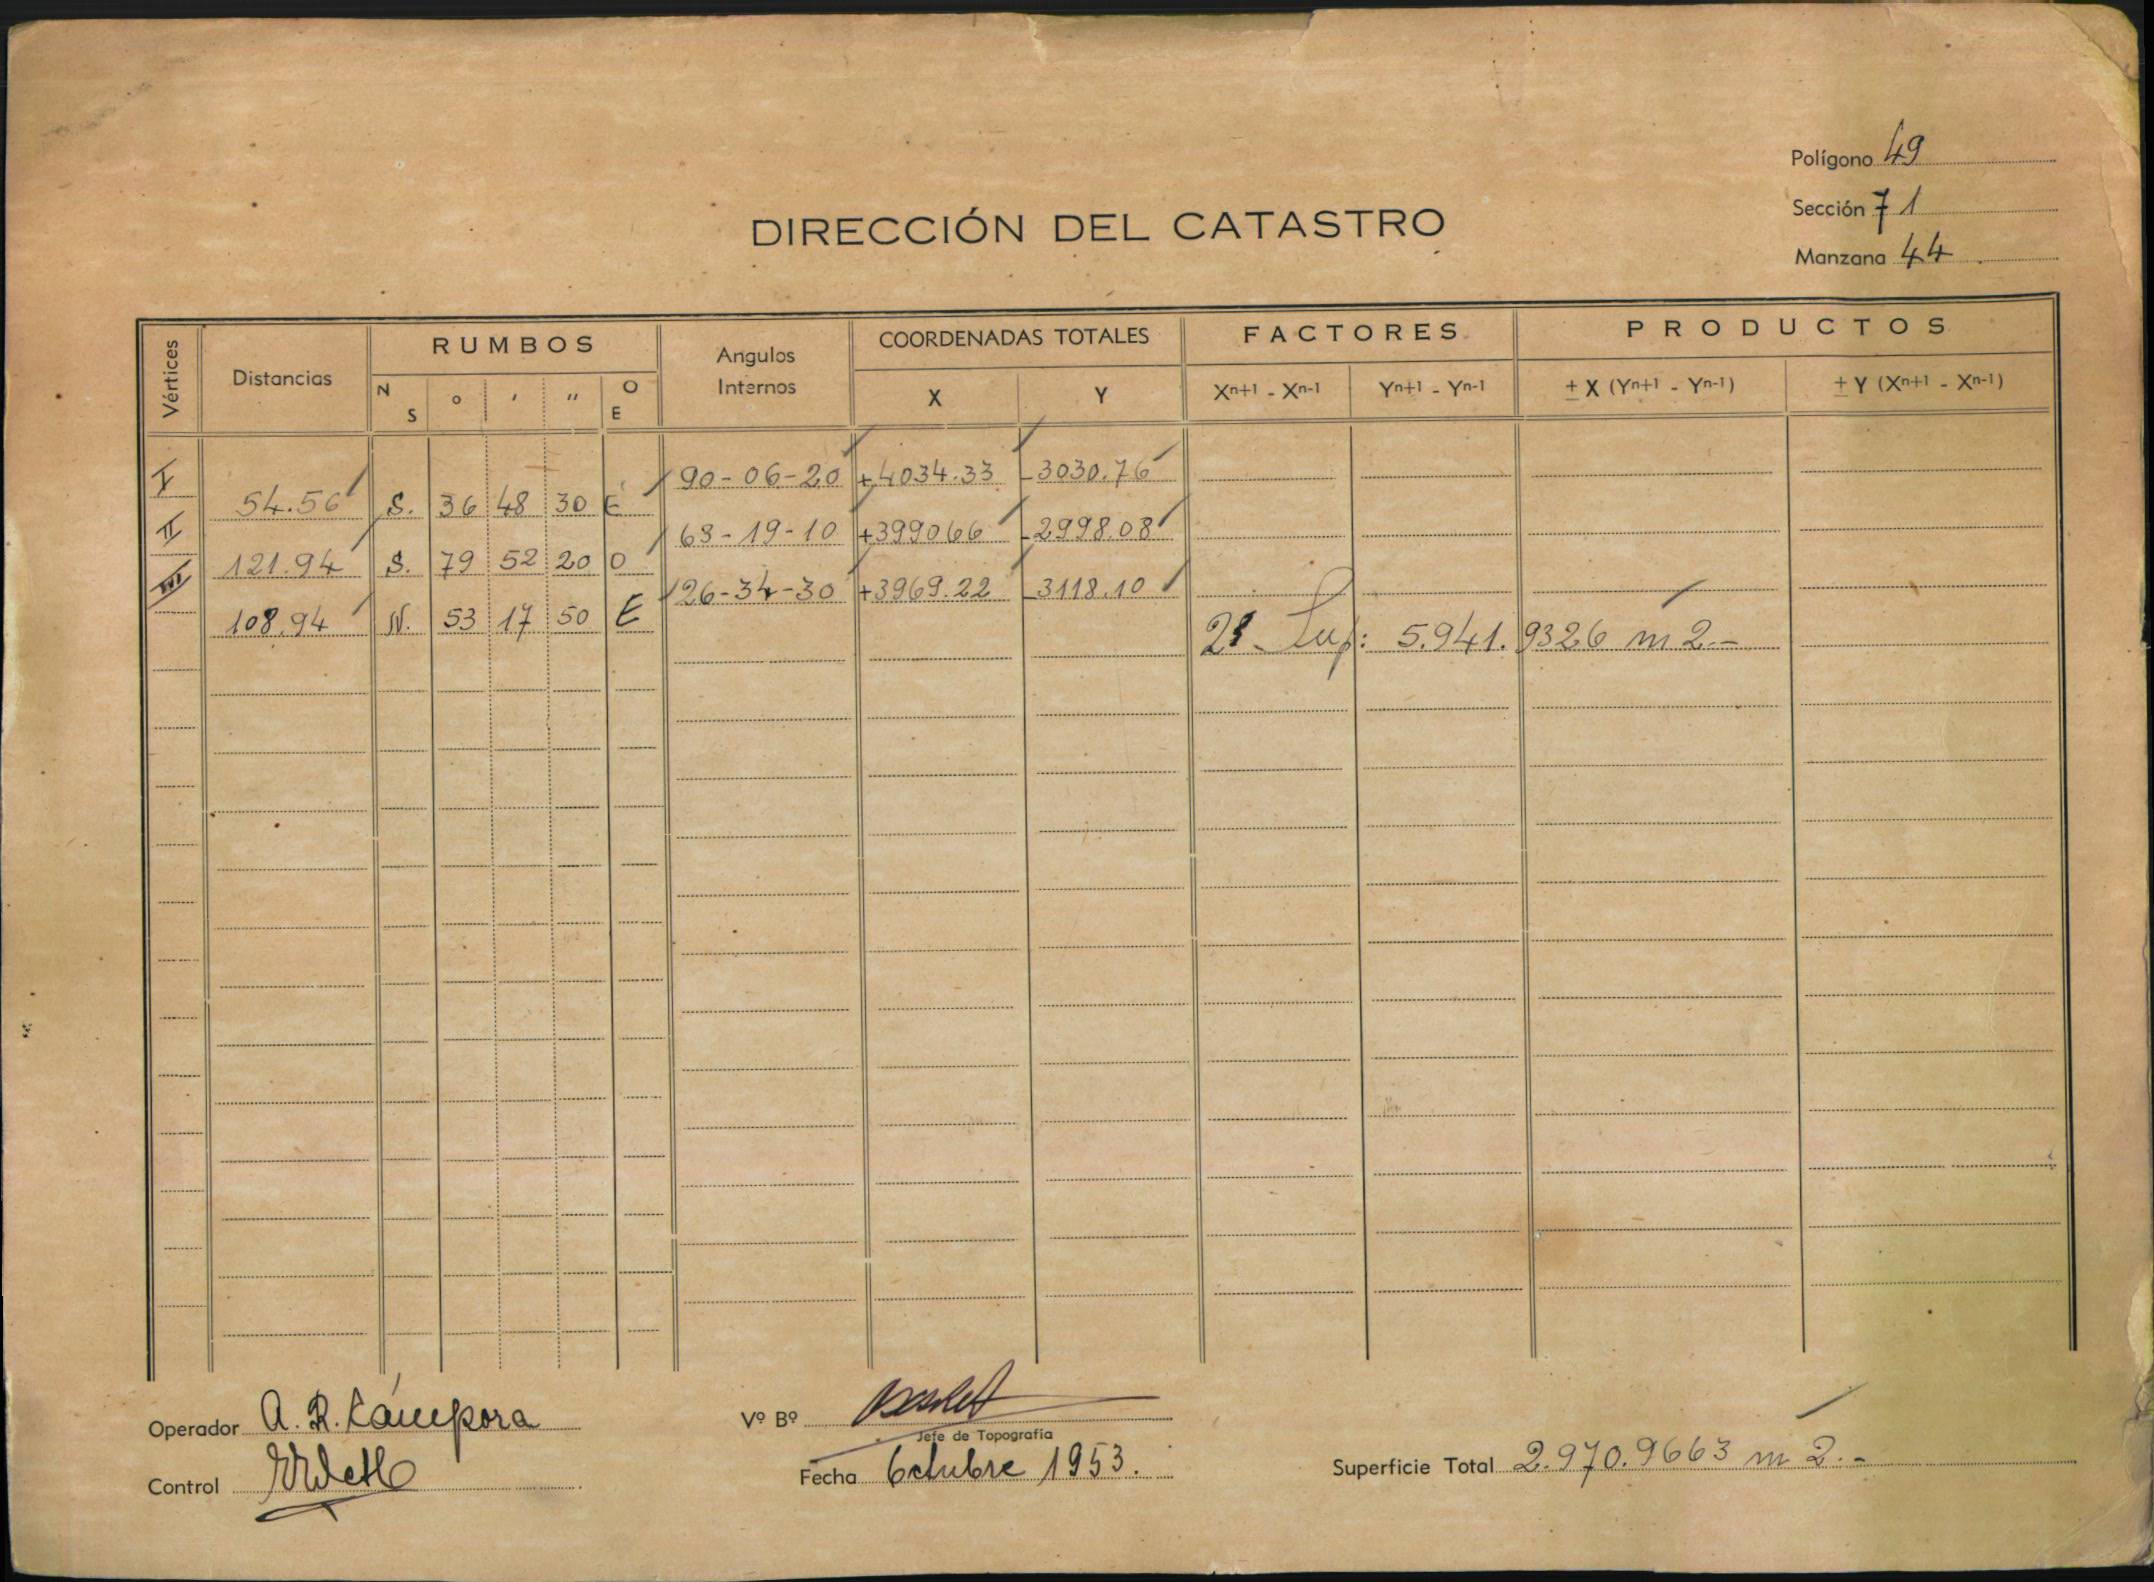 Polígono 49
Sección 71
Manzana 44
DIRECCIÓN DEL CATASTRO
Vértices Distancias RUMBOS Angulos Internos COORDENADAS TOTALES FACTORES PRODUCTOS
N S ° ' " O E X Y Xn+1 - Xn-1 Yn+1 - Yn-1 ± X (Yn+1 - Yn-1) ± Y (Xn+1 - Xn-1)
I 90-06-20 +4034.33 -3030.76
54.56 S. 36 48 30 E
II 63-19-10 +399066 -2998.08
121.94 S. 79 52 20 O
III 26-34-30 +3969.22 -3118.10
108.94 N. 53 17 50 E
2 Sup: 5.941.9326 m 2.-
Operador A. R. Cámpora
Vº Bº
Jefe de Topografía
Control
Fecha Octubre 1953.
Superficie Total 2.970.9663 m 2.-